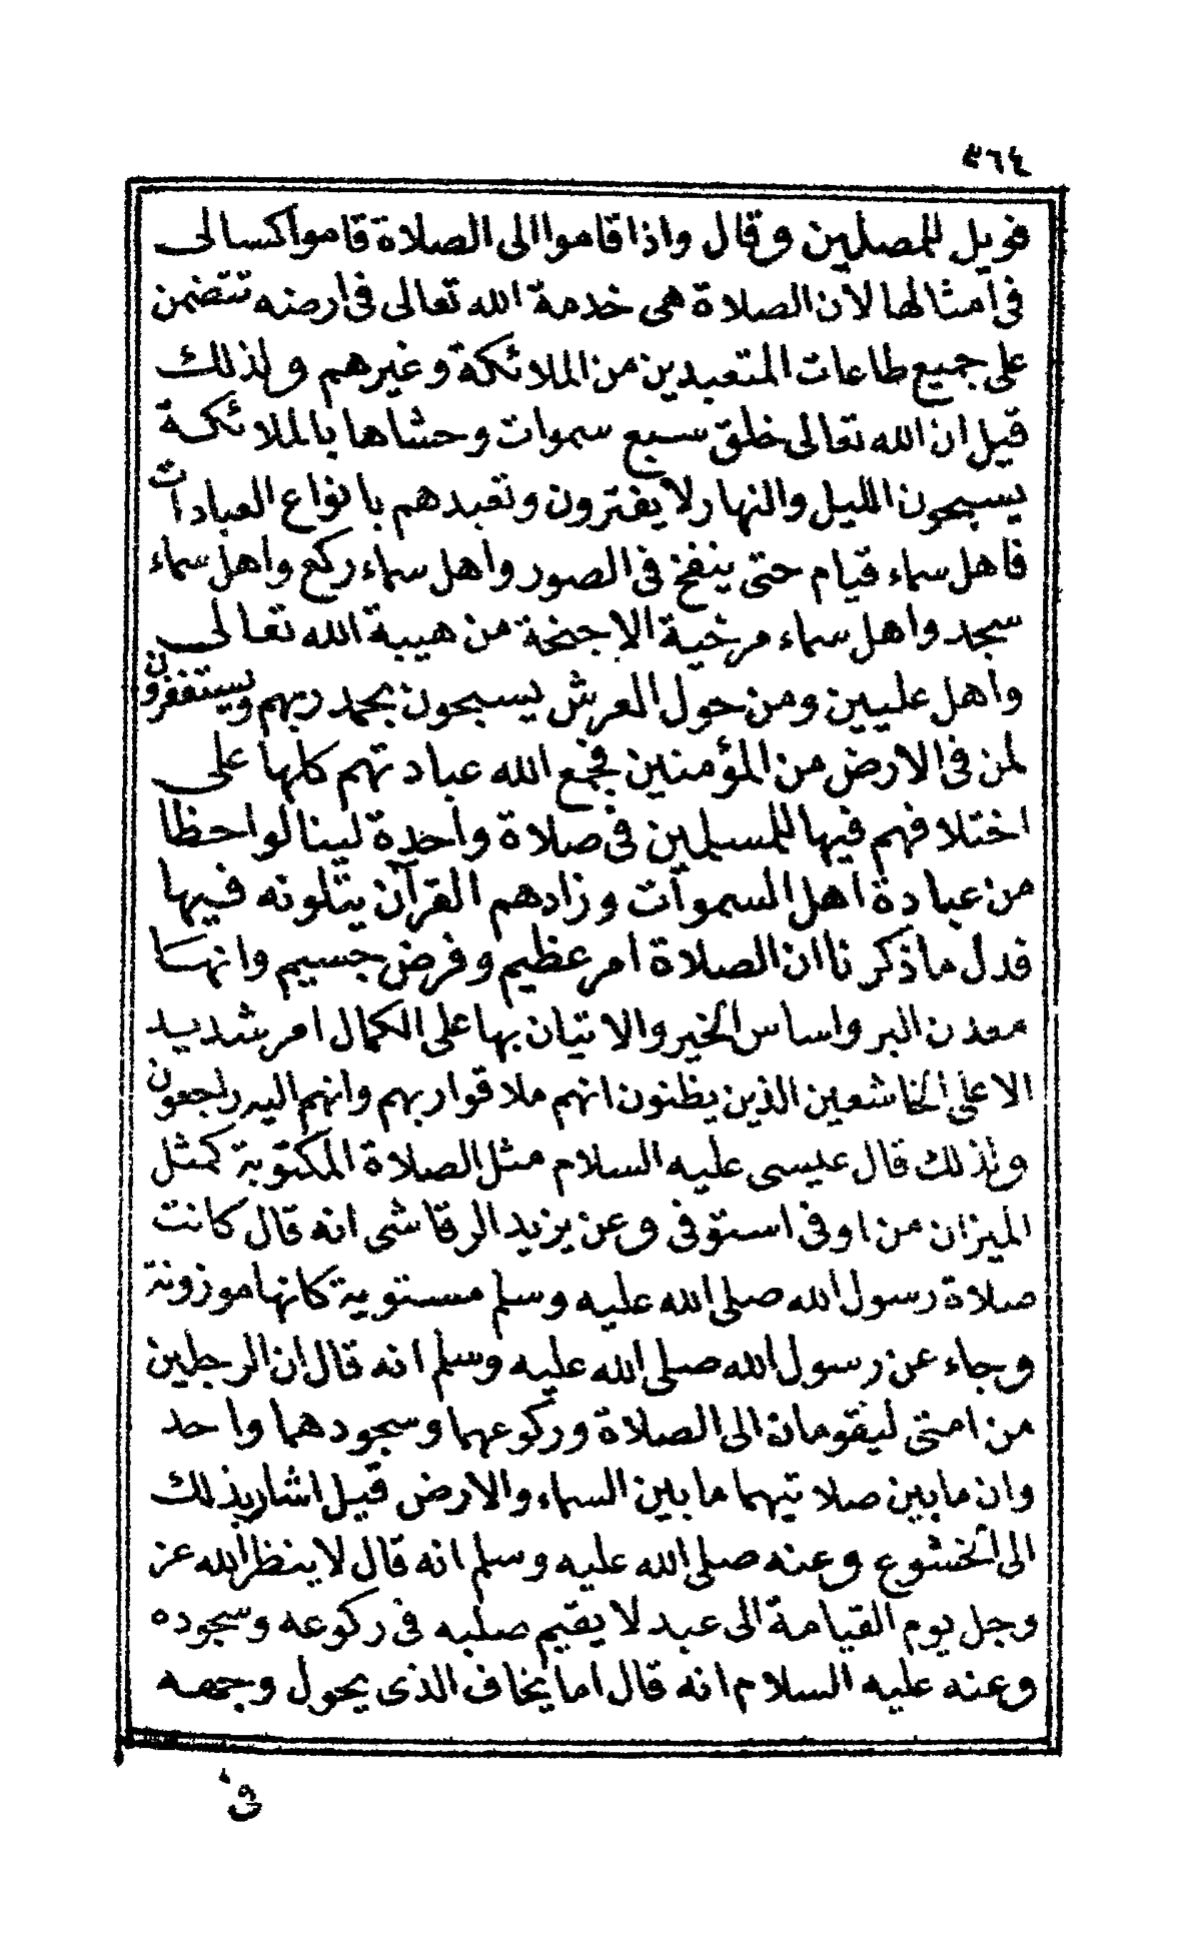 ٣٦٤
فويل للمصلين وقال واذا قاموا الى الصلاة قاموا كسالى
فى أمثالها لأن الصلاة هى خدمة الله تعالى فى ارضه تتضمن
على جميع طاعات المتعبدين من الملائكة وغيرهم ولذلك
قيل ان الله تعالى خلق سبع سموات وحشاها بالملائكة
يسبحون الليل والنهار لا يفترون وتعبدهم بانواع العبادات
فاهل سماء قيام حتى ينفخ فى الصور واهل سماء ركع واهل سماء
سجد واهل سماء مرخية الاجنحة من هيبة الله تعالى
واهل عليين ومن حول العرش يسبحون بحمد ربهم ويستغفرون
لمن فى الارض من المؤمنين فجمع الله عبادتهم كلها على
اختلافهم فيها للمسلمين فى صلاة واحدة لينالوا حظا
من عبادة اهل السموات وزادهم القرآن يتلونه فيها
فدل ما ذكرنا ان الصلاة امر عظيم وفرض جسيم وانها
معدن البر واساس الخير والاتيان بها على الكمال امر شديد
الا على الخاشعين الذين يظنون انهم ملاقوا ربهم وانهم اليه راجعون
ولذلك قال عيسى عليه السلام مثل الصلاة المكتوبة كمثل
الميزان من اوفى استوفى وعن يزيد الرقاشى انه قال كانت
صلاة رسول الله صلى الله عليه وسلم مستوية كانها موزونة
وجاء عن رسول الله صلى الله عليه وسلم انه قال ان الرجلين
من امتى ليقومان الى الصلاة وركوعهما وسجودهما واحد
وان ما بين صلاتيهما ما بين السماء والارض قيل اشار بذلك
الى الخشوع وعنه صلى الله عليه وسلم انه قال لا ينظر الله عز
وجل يوم القيامة الى عبد لا يقيم صلبه فى ركوعه وسجوده
وعنه عليه السلام انه قال اما يخاف الذى يحول وجهه
فى